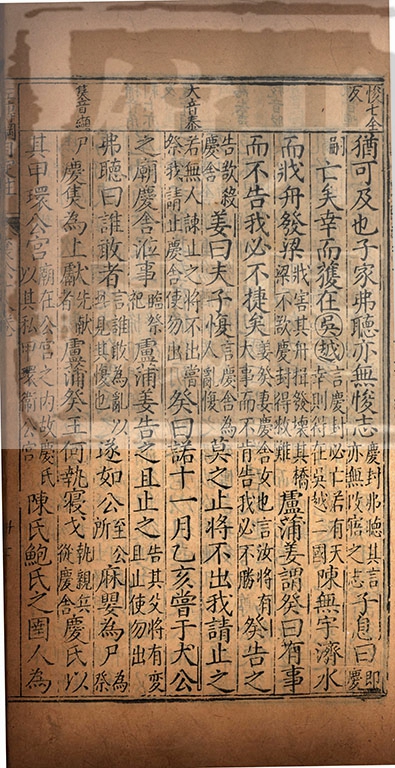 悛七全反
猶可及也子家弗聽亦無悛志慶封弗聽其言亦無改寤之志子息曰即慶
嗣亡矣幸而獲在吳越言慶封必亡若有天幸則得在吳越二國陳無宇濟水
而戕舟發梁戕害其舟揖發壞其橋梁不欲慶封得救難盧蒲姜謂癸曰有事
而不告我必不捷矣姜癸妻慶舍女也言汝將有大事而不肯告我必不勝癸告之
告欲殺慶舍姜曰夫子愎言慶舍為人亂愎莫之止將不出我請止之
大音泰
若無人諫止之將不出嘗祭我請止慶舍使勿出癸曰諾十一月乙亥嘗于大公
之廟慶舍涖事臨祭祀盧蒲姜告之且止之告其父將有變且止使勿出
弗聽曰誰敢者言誰敢為亂以見其愎也遂如公至公所麻嬰為尸為祭
奊音纈
尸慶奊為上獻先獻者盧蒲癸王何執寢戈執親兵從慶舍慶氏以
其甲環公宮廟在公宮之內故慶氏以其私甲環衛公宮陳氏鮑氏之圉人為